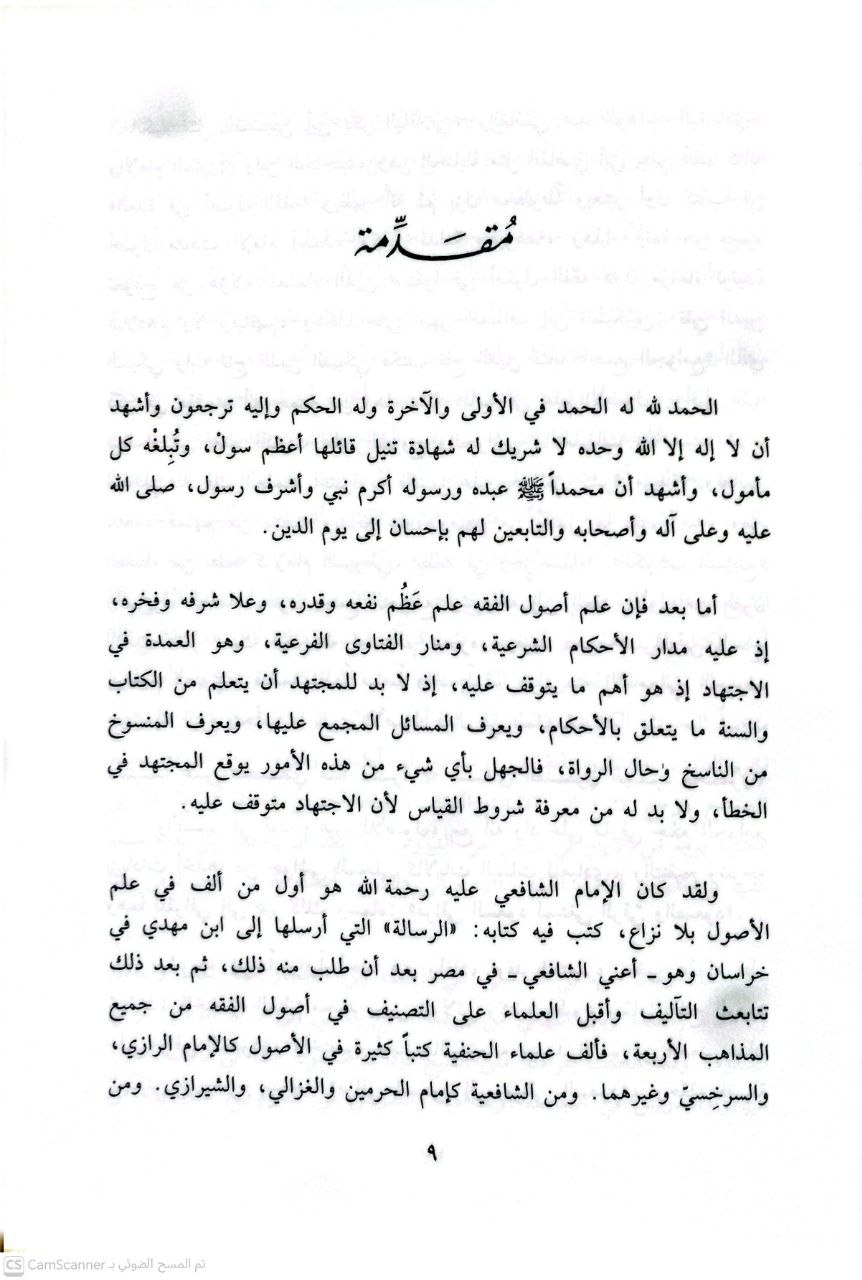 مُقَدِّمة
الحمد لله له الحمد في الأولى والآخرة وله الحكم وإليه ترجعون وأشهد
أن لا إله إلا الله وحده لا شريك له شهادة تنيل قائلها أعظم سولْ، وتُبِلغْه كل
مأمول، وأشهد أن محمداً ﷺ عبده ورسوله أكرم نبي وأشرف رسول، صلى الله
عليه وعلى آله وأصحابه والتابعين لهم بإحسان إلى يوم الدين.
أما بعد فإن علم أصول الفقه علم عَظُم نفعه وقدره، وعلا شرفه وفخره،
إذ عليه مدار الأحكام الشرعية، ومنار الفتاوى الفرعية، وهو العمدة في
الاجتهاد إذ هو أهم ما يتوقف عليه، إذ لا بد للمجتهد أن يتعلم من الكتاب
والسنة ما يتعلق بالأحكام، ويعرف المسائل المجمع عليها، ويعرف المنسوخ
من الناسخ وحال الرواة، فالجهل بأي شيء من هذه الأمور يوقع المجتهد في
الخطأ، ولا بد له من معرفة شروط القياس لأن الاجتهاد متوقف عليه.
ولقد كان الإمام الشافعي عليه رحمة الله هو أول من ألف في علم
الأصول بلا نزاع، كتب فيه كتابه: «الرسالة» التي أرسلها إلى ابن مهدي في
خراسان وهو ـ أعني الشافعي ـ في مصر بعد أن طلب منه ذلك، ثم بعد ذلك
تتابعث التآليف وأقبل العلماء على التصنيف في أصول الفقه من جميع
المذاهب الأربعة، فألف علماء الحنفية كتباً كثيرة في الأصول كالإمام الرازي،
والسرخِسيّ وغيرهما. ومن الشافعية كإمام الحرمين والغزالي، والشيرازي. ومن
٩
CS CamScanner تم المسح الضوئي بـ